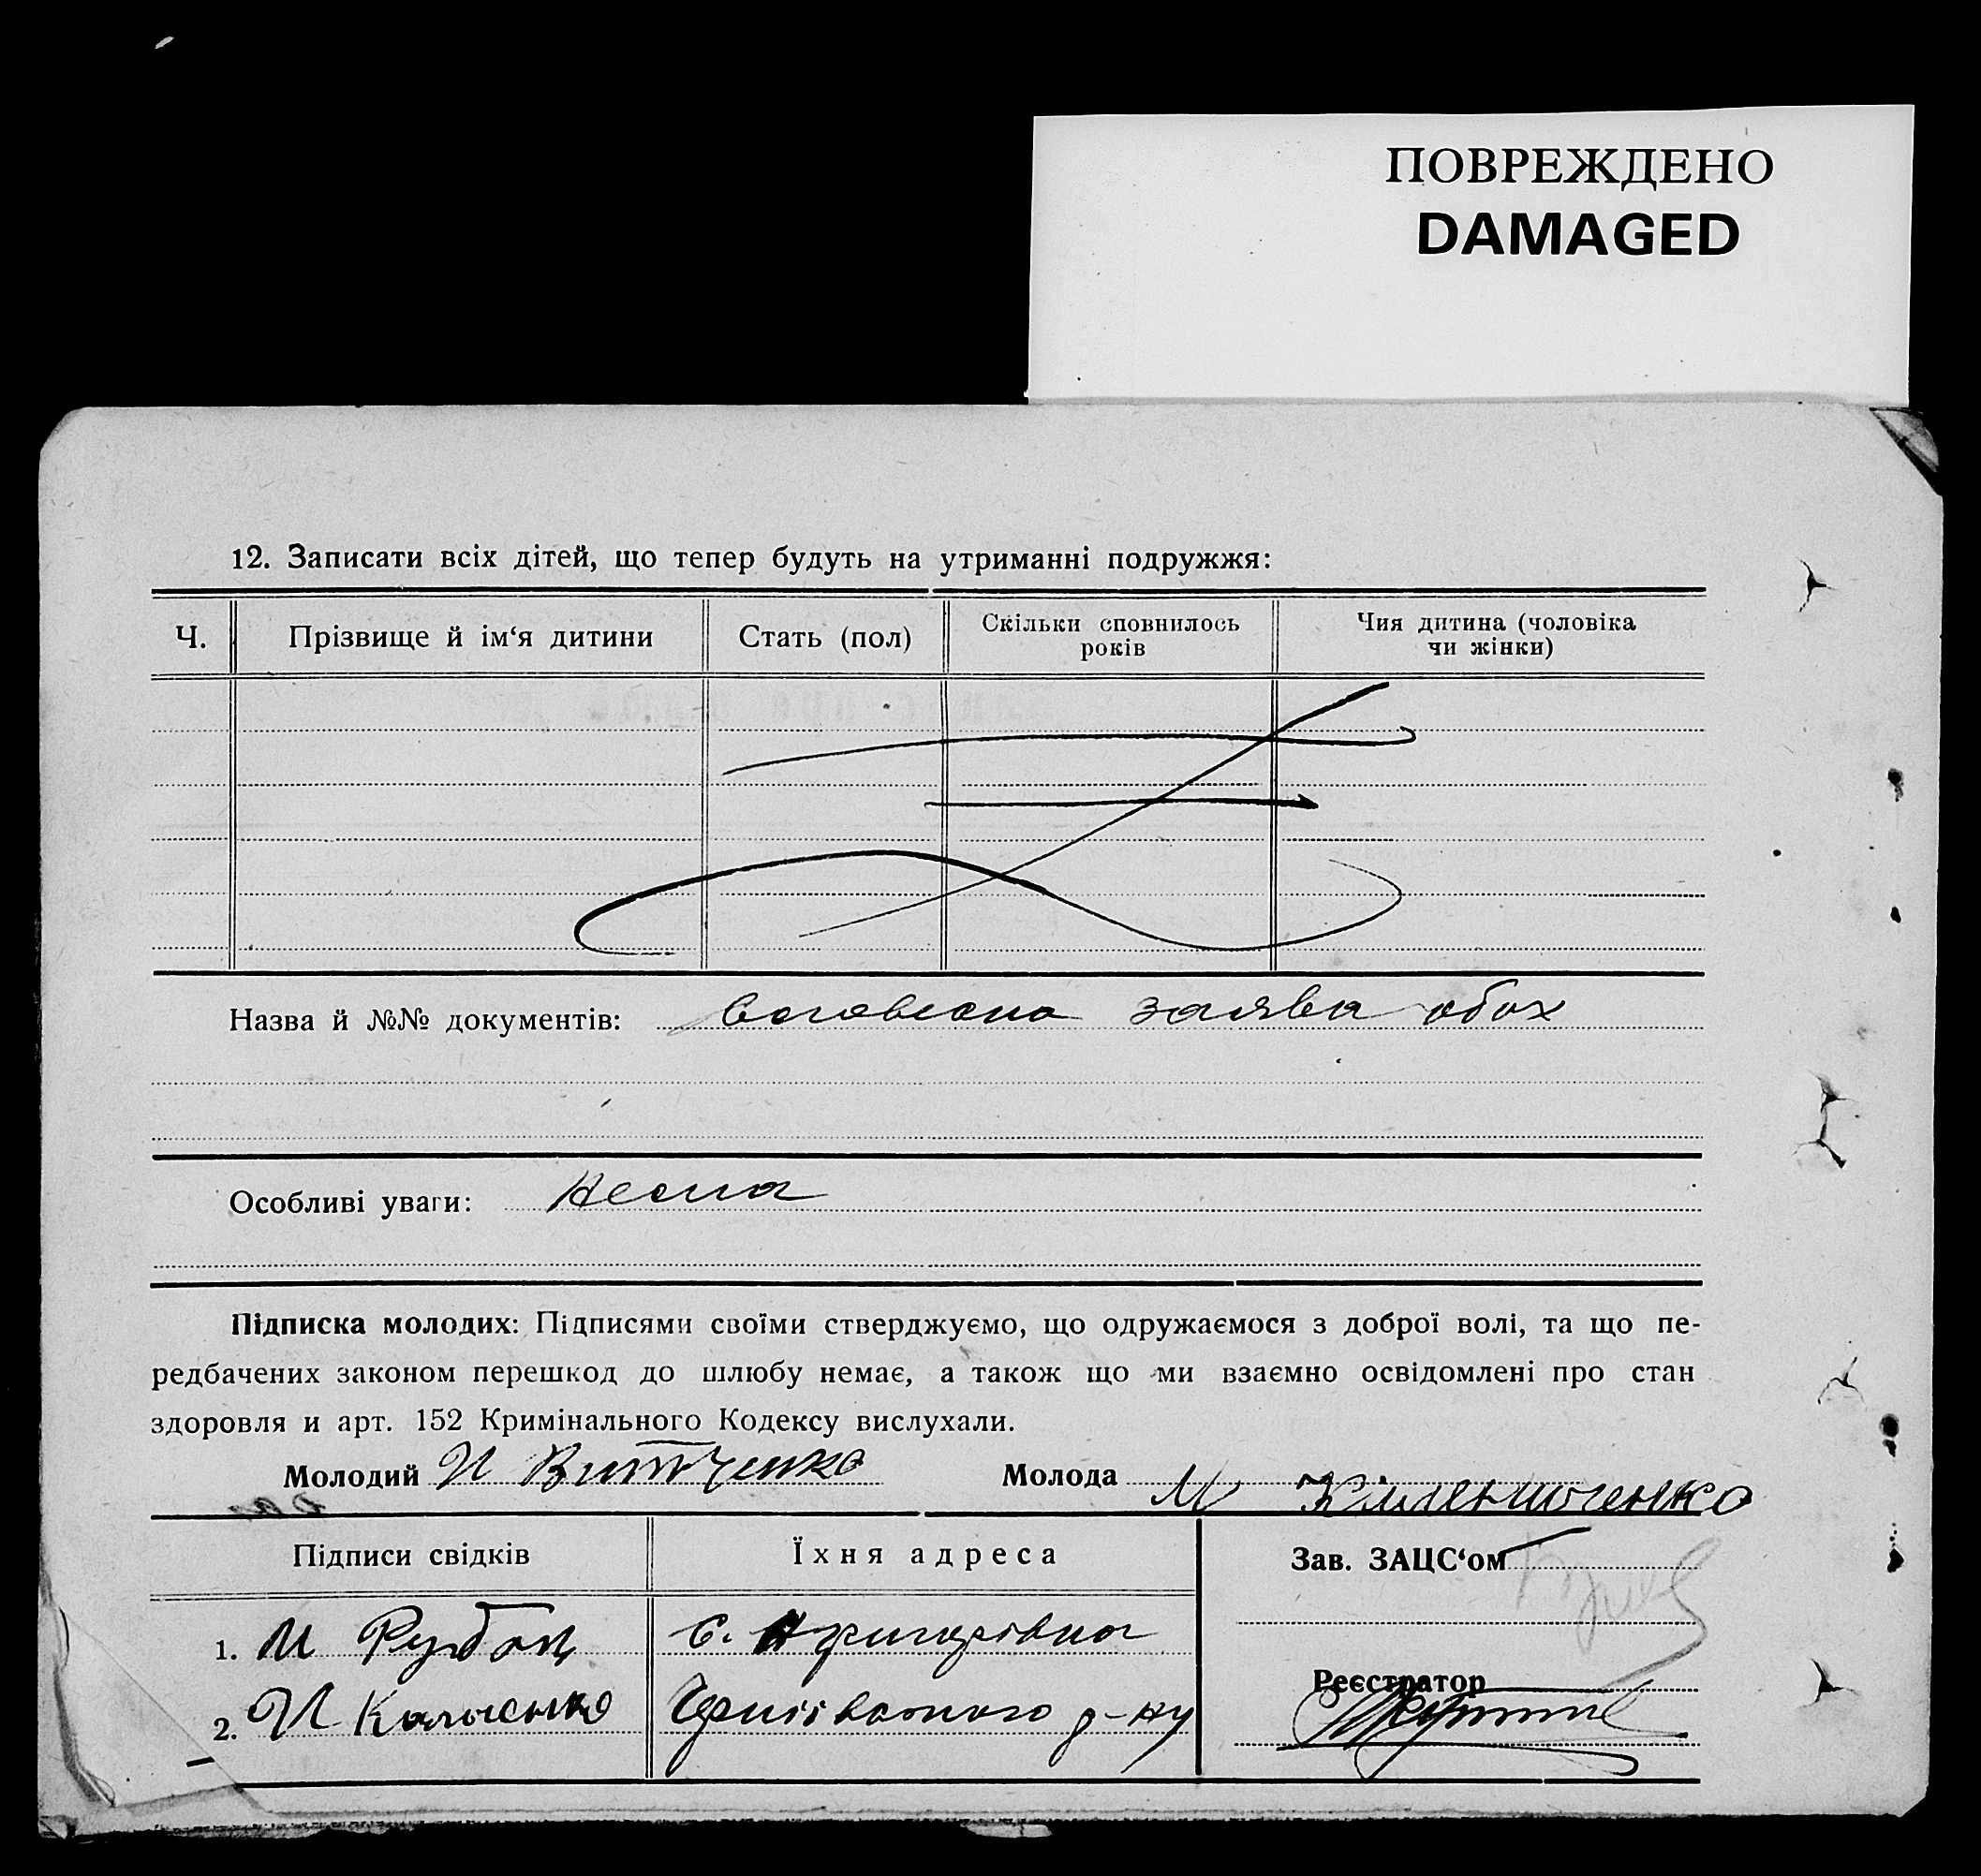 ПОВРЕЖДЕНО
DAMAGED
12. Записати всіх дітей, що тепер будуть на утриманні подружжя:
Ч.
Прізвище й ім‘я дитини
Стать (пол)
Скільки сповнилось
років
Чия дитина (чоловіка
чи жінки)
Назва й №№ документів: заява обох
Особливі уваги:
Підписка молодих: Підписями своїми стверджуємо, що одружаємося з доброї волі, та що пе-
редбачених законом перешкод до шлюбу немає, а також що ми взаємно освідомлені про стан
здоровля и арт. 152 Кримінального Кодексу вислухали.
Молодий И
Молода М
Підписи свідків
Їхня адреса
Зав. ЗАЦС‘ом
1. М
с.
Реєстратор
2. И
р-ну